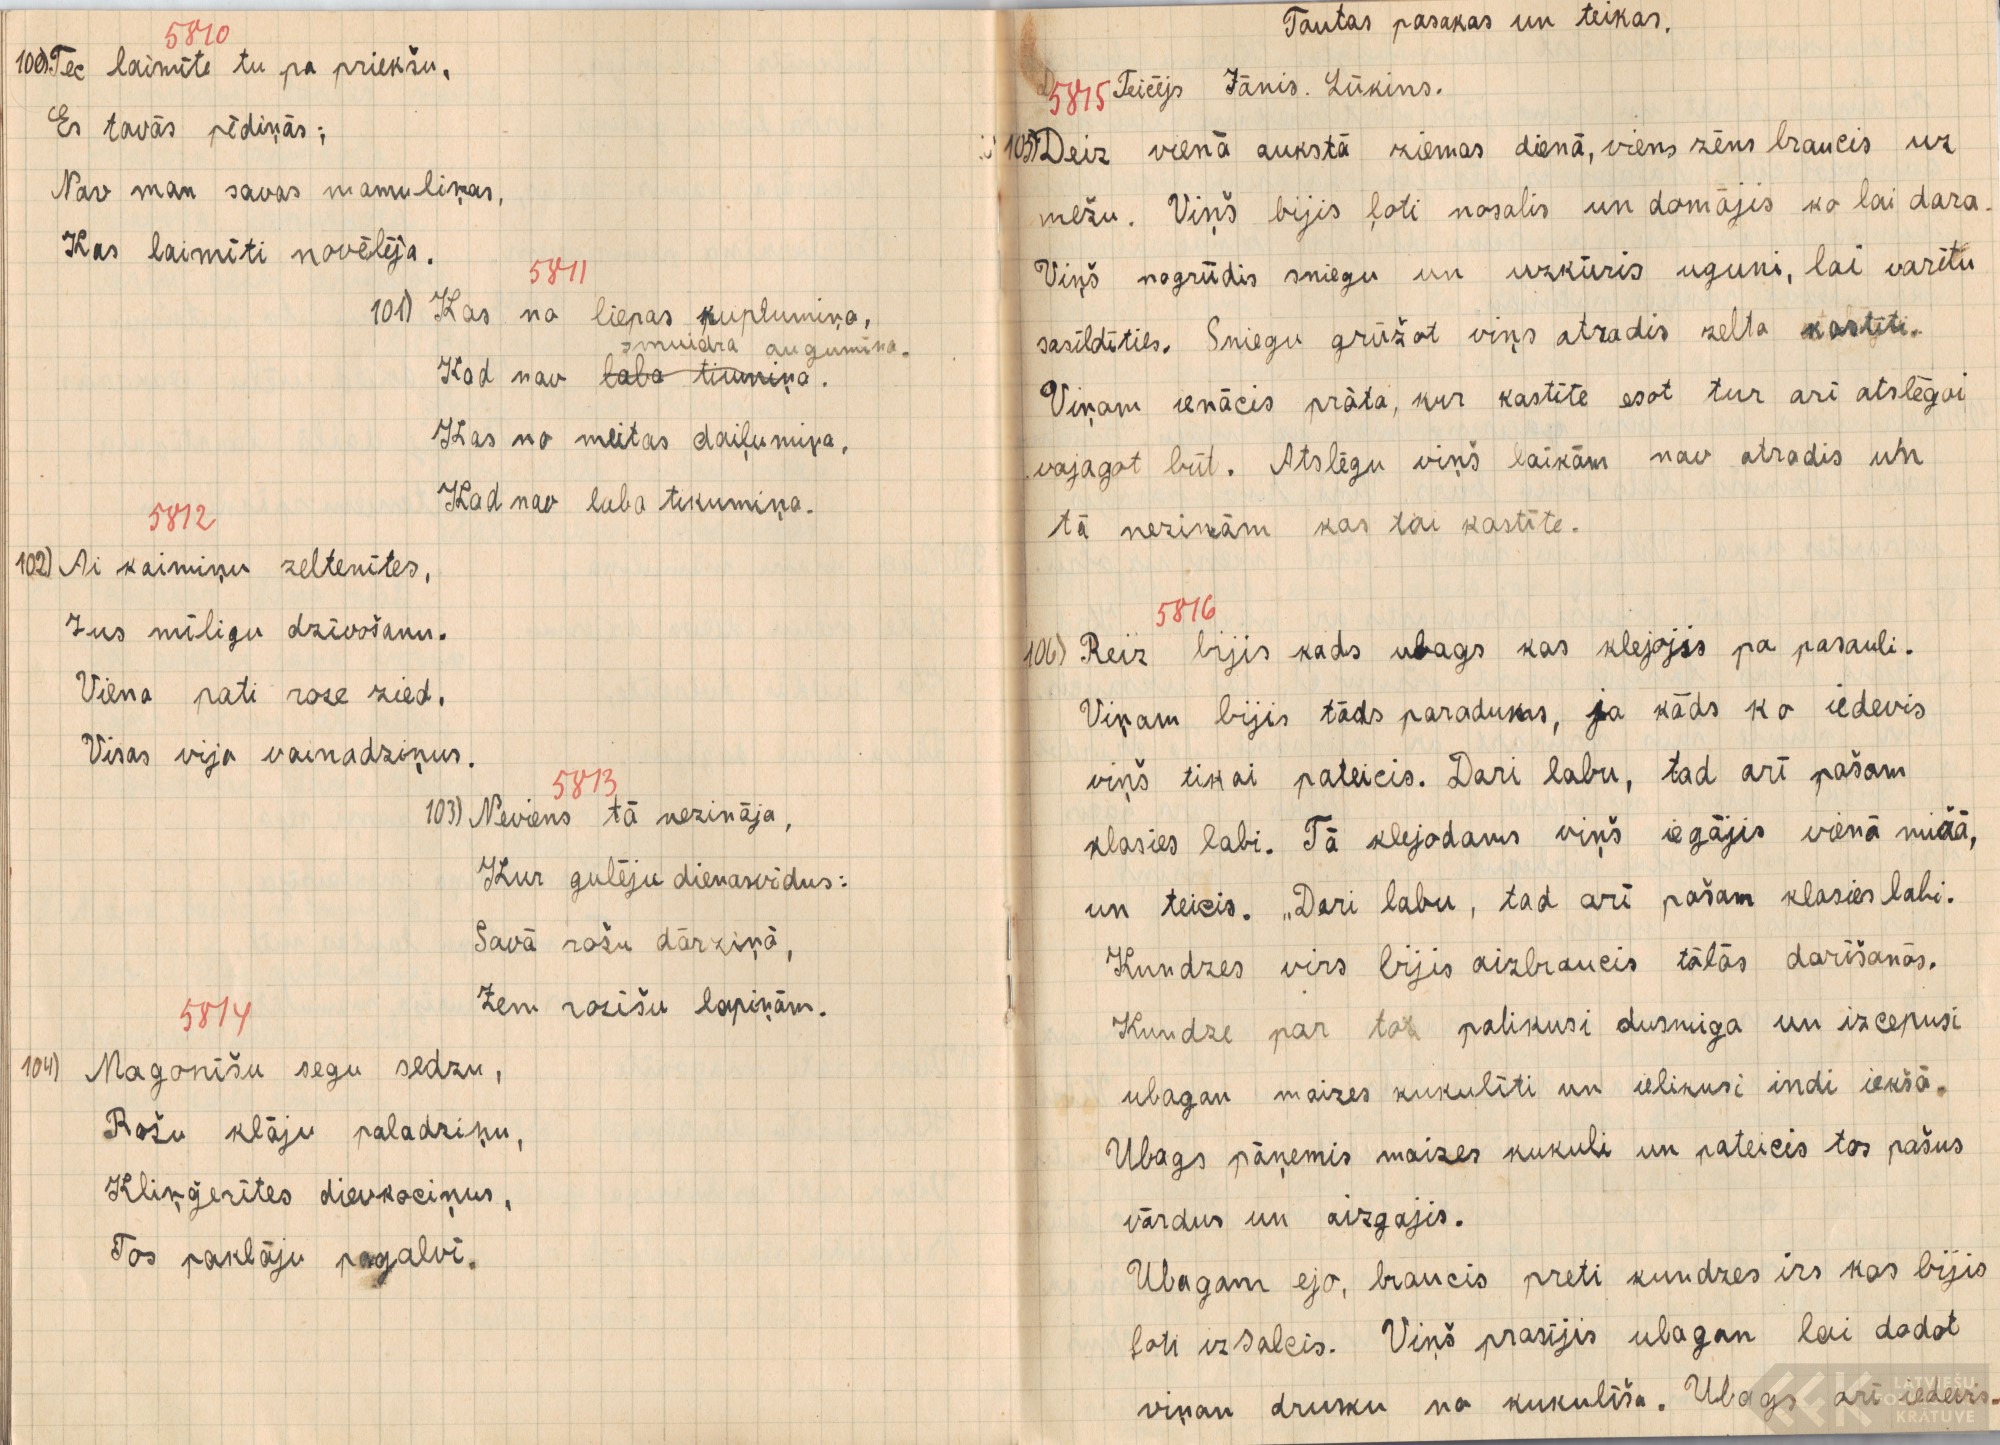 5810
100) Tec laimīte tu pa priekšu,
Es tavās pēdiņās;
Nav man savas mamuliņas,
Kas laimīti novēlēja.
5811
101) Kas no liepas kuplumiņa,
smuidra augumiņa.
Kad nav laba tiumiņa.
Kas no meitas daiļumiņa,
Kad nav laba tikumiņa.
5812
102) Ai kaimiņu zeltenītes,
Jus mīligu dzīvošanu.
Viena pati roze zied,
Visas vija vainadziņus.
5813
103) Neviens tā nezināja,
Kur gulēju dienasvidus:
Savā rožu dārziņā,
Zem rozīšu lapiņām.
5814
104) Magonīšu segu sedzu,
Rožu klāju paladziņu,
Kliņģerītes dievkociņus,
Tos paklāju pagalvī.
Tautas pasakas un teikas.
5815 Teicējs Jānis. Lūkins.
105) Deiz vienā aukstā ziemas dienā, viens zēns braucis uz
mežu. Viņš bijis ļoti nosalis un domājis ko lai dara.
Viņš nogrūdis sniegu un uzkūris uguni, lai varētu
sasildīties. Sniegu grūžot viņs atradis zelta kastīti.
Viņam ienācis prāta, kur kastīte esot tur arī atslēgai
vajagot būt. Atslēgu viņš laikām nav atradis un
tā nezinām kas tai kastīte.
5816
106) Reiz bijis kads ubags kas klejojis pa pasauli.
Viņam bijis tāds paradums, ja kāds ko iedevis
viņš tikai pateicis. Dari labu, tad arī pašam
klasies labi. Tā klejodams viņš iegājis vienā mižā,
un teicis. „Dari labu, tad arī pašam klasies labi.
Kundzes virs bijis aizbraucis tālās darīšanās.
Kundze par to palikusi dusmiga un izcepusi
ubagan maizes kukulīti un ielikusi indi iekšā.
Ubags pāņemis maizes kukuli un pateicis tos pašus
vārdus un aizgajis.
Ubagam ejo, braucis preti kundzes irs kas bijis
ļoti izsalcis. Viņš prasījis ubagan lai dodot
viņau drusku no kukulīša. Ubags arī iedevis.
LATVIEŠU
KRĀTUVE